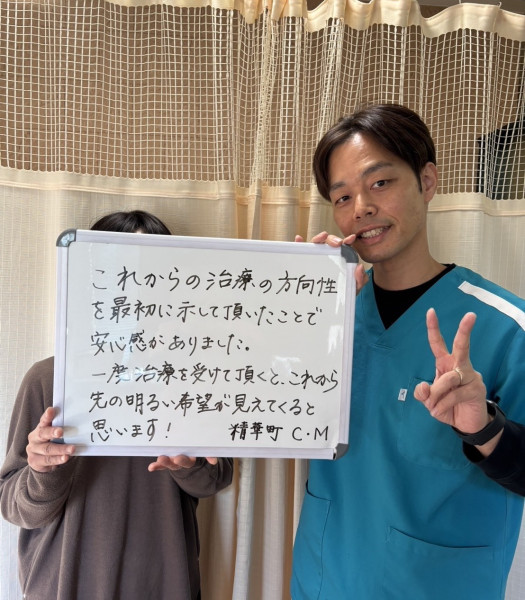 これからの治療の方向性
を最初に示して頂いたことで
安心感がありました。
一度治療を受けて頂くと、これから
先の明るい希望が見えてくると
思います！ 精華町 C・M